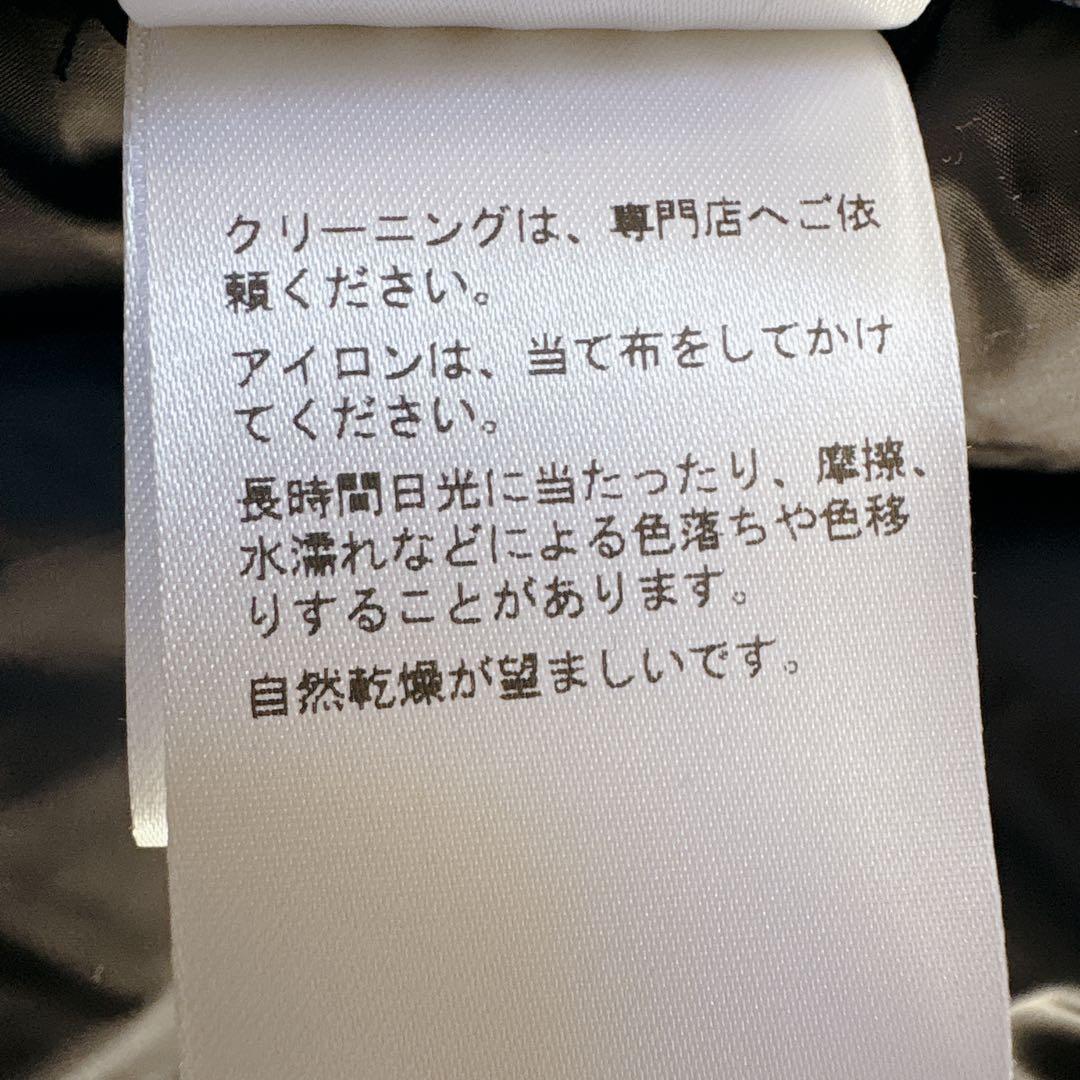 クリーニングは、専門店へご依
頼ください。
アイロンは、当て布をしてかけ
てください。
長時間日光に当たったり、摩擦、
水濡れなどによる色落ちや色移
りすることがあります。
自然乾燥が望ましいです。